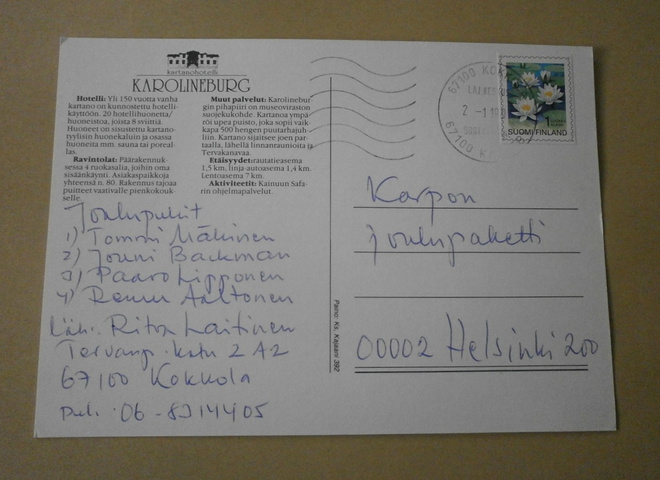 kartanohotelli
KAROLINEBURG
Hotelli: Yli 150 vuotta vanha
kartano on kunnostettu hotelli-
käyttöön. 20 hotellihuonetta/
huoneistoa, joista 8 sviittiä.
Huoneet on sisustettu kartano-
tyylisin huonekaluin ja osassa
huoneita mm. sauna tai poreal-
las.
Ravintolat: Päärakennuk-
sessa 4 ruokasalia, joihin oma
sisäänkäynti. Asiakaspaikkoja
yhteensä n. 80. Rakennus tajoaa
puitteet vaativalle pienkokouk-
selle.
Muut palvelut: Karolinebur-
gin pihapiiri on museoviraston
suojelukohde. Kartanoa ympä-
röi upea puisto, joka sopii vaik-
kapa 500 hengen puutarhajuh-
liin. Kartano sijaitsee joen par-
taalla, lähellä linnanraunioita ja
Tervakanavaa.
Etäisyydet: rautatieasema
1,5 km, linja-autoasema 1,4 km.
Lentoasema 7 km.
Aktiviteetit: Kainuun Safa-
rin ohjelmapalvelut.
Joulupukit
1) Tommi Mäkinen
2) Jouni Backman
3) Paavo Lipponen
4) Remu Aaltonen
Läh. Ritva Laitinen
Tervang. katu 2 A2
67100 Kokkola
puh. 06-8314405
Paino: Kk. Kajaani 392
67100 KOK
2 -1
67100 K
SUOMI FINLAND
Karpon
joulupaketti
00002 Helsinki 200